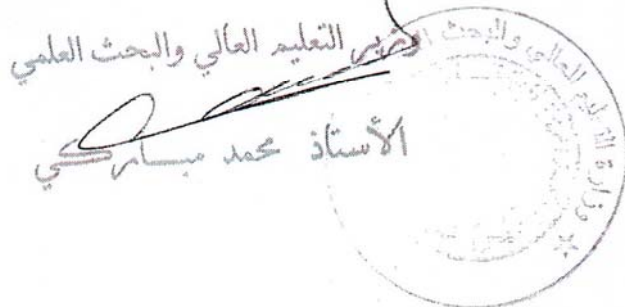 وزير التعليم العالي والبحث العلمي
الأستاذ محمد مباركي
وزارة التعليم العالي والبحث